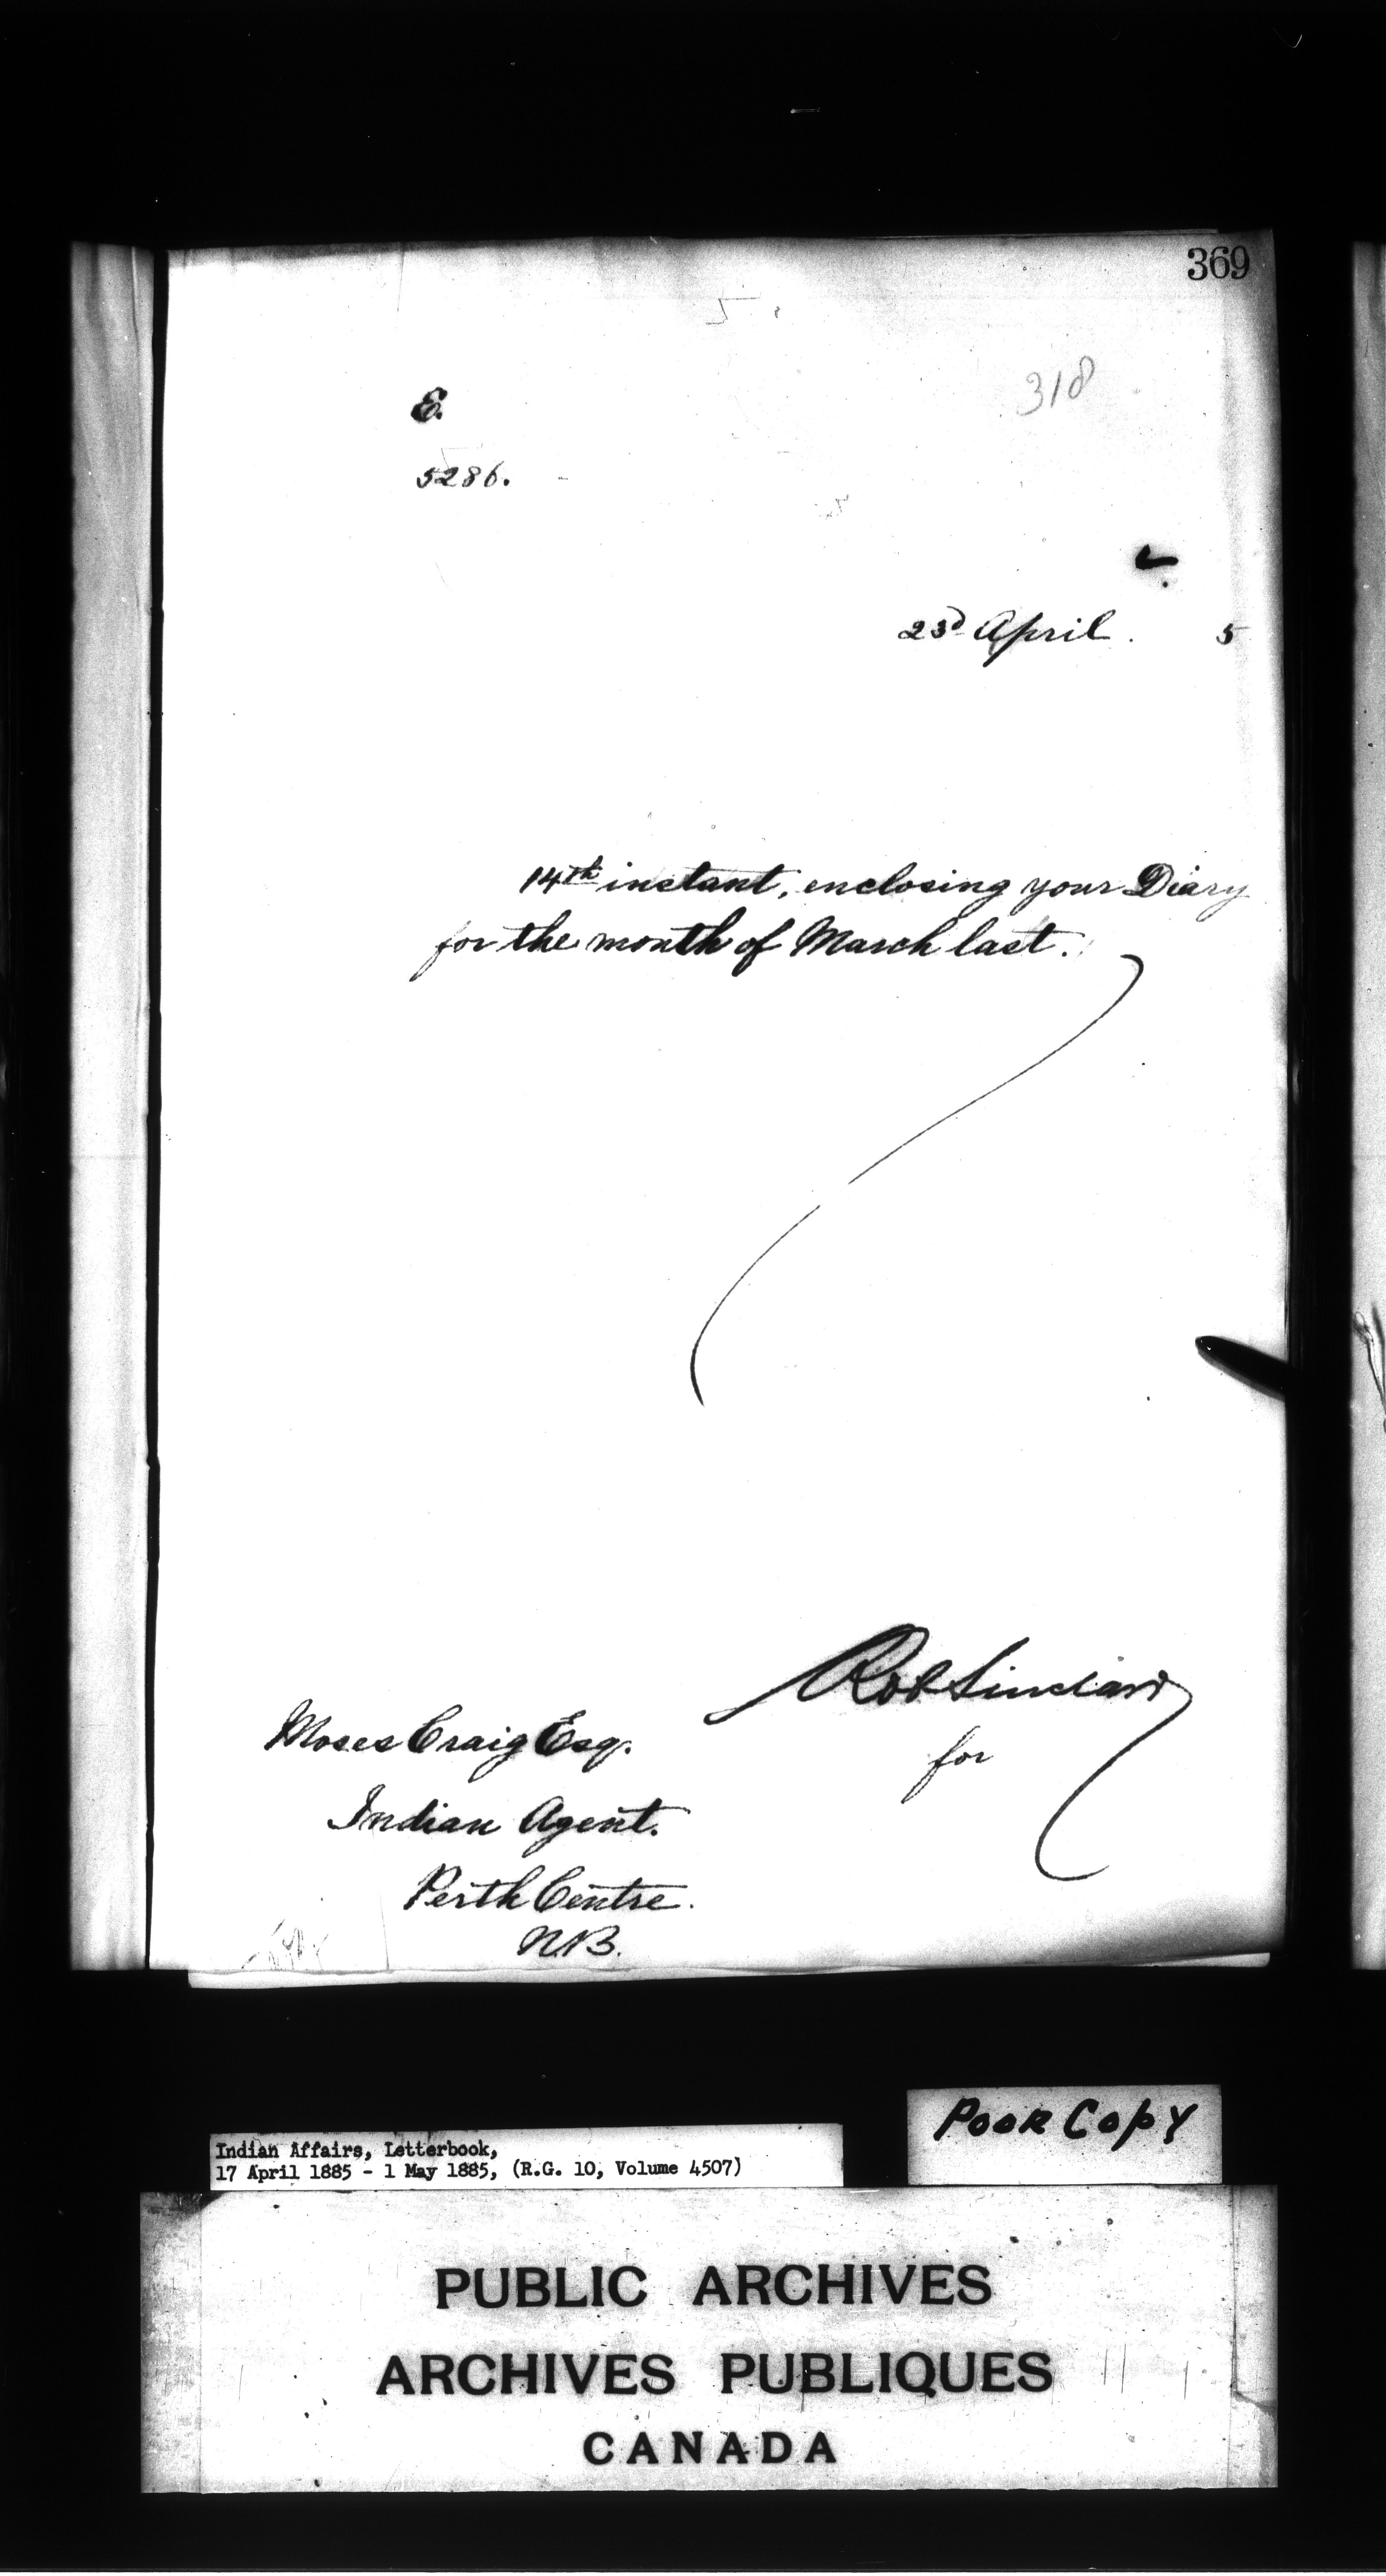 369
318
E.
5286.
23d April. 5
14th instant, enclosing your Diary
for the month of March last.
Rob Sinclair
for
Moses Craig Esq.
Indian Agent.
Perth Centre.
N.B.
POOR COPY
Indian Affairs, Letterbook,
17 April 1885 - 1 May 1885, (R.G. 10, Volume 4507)
PUBLIC ARCHIVES
ARCHIVES PUBLIQUES
CANADA